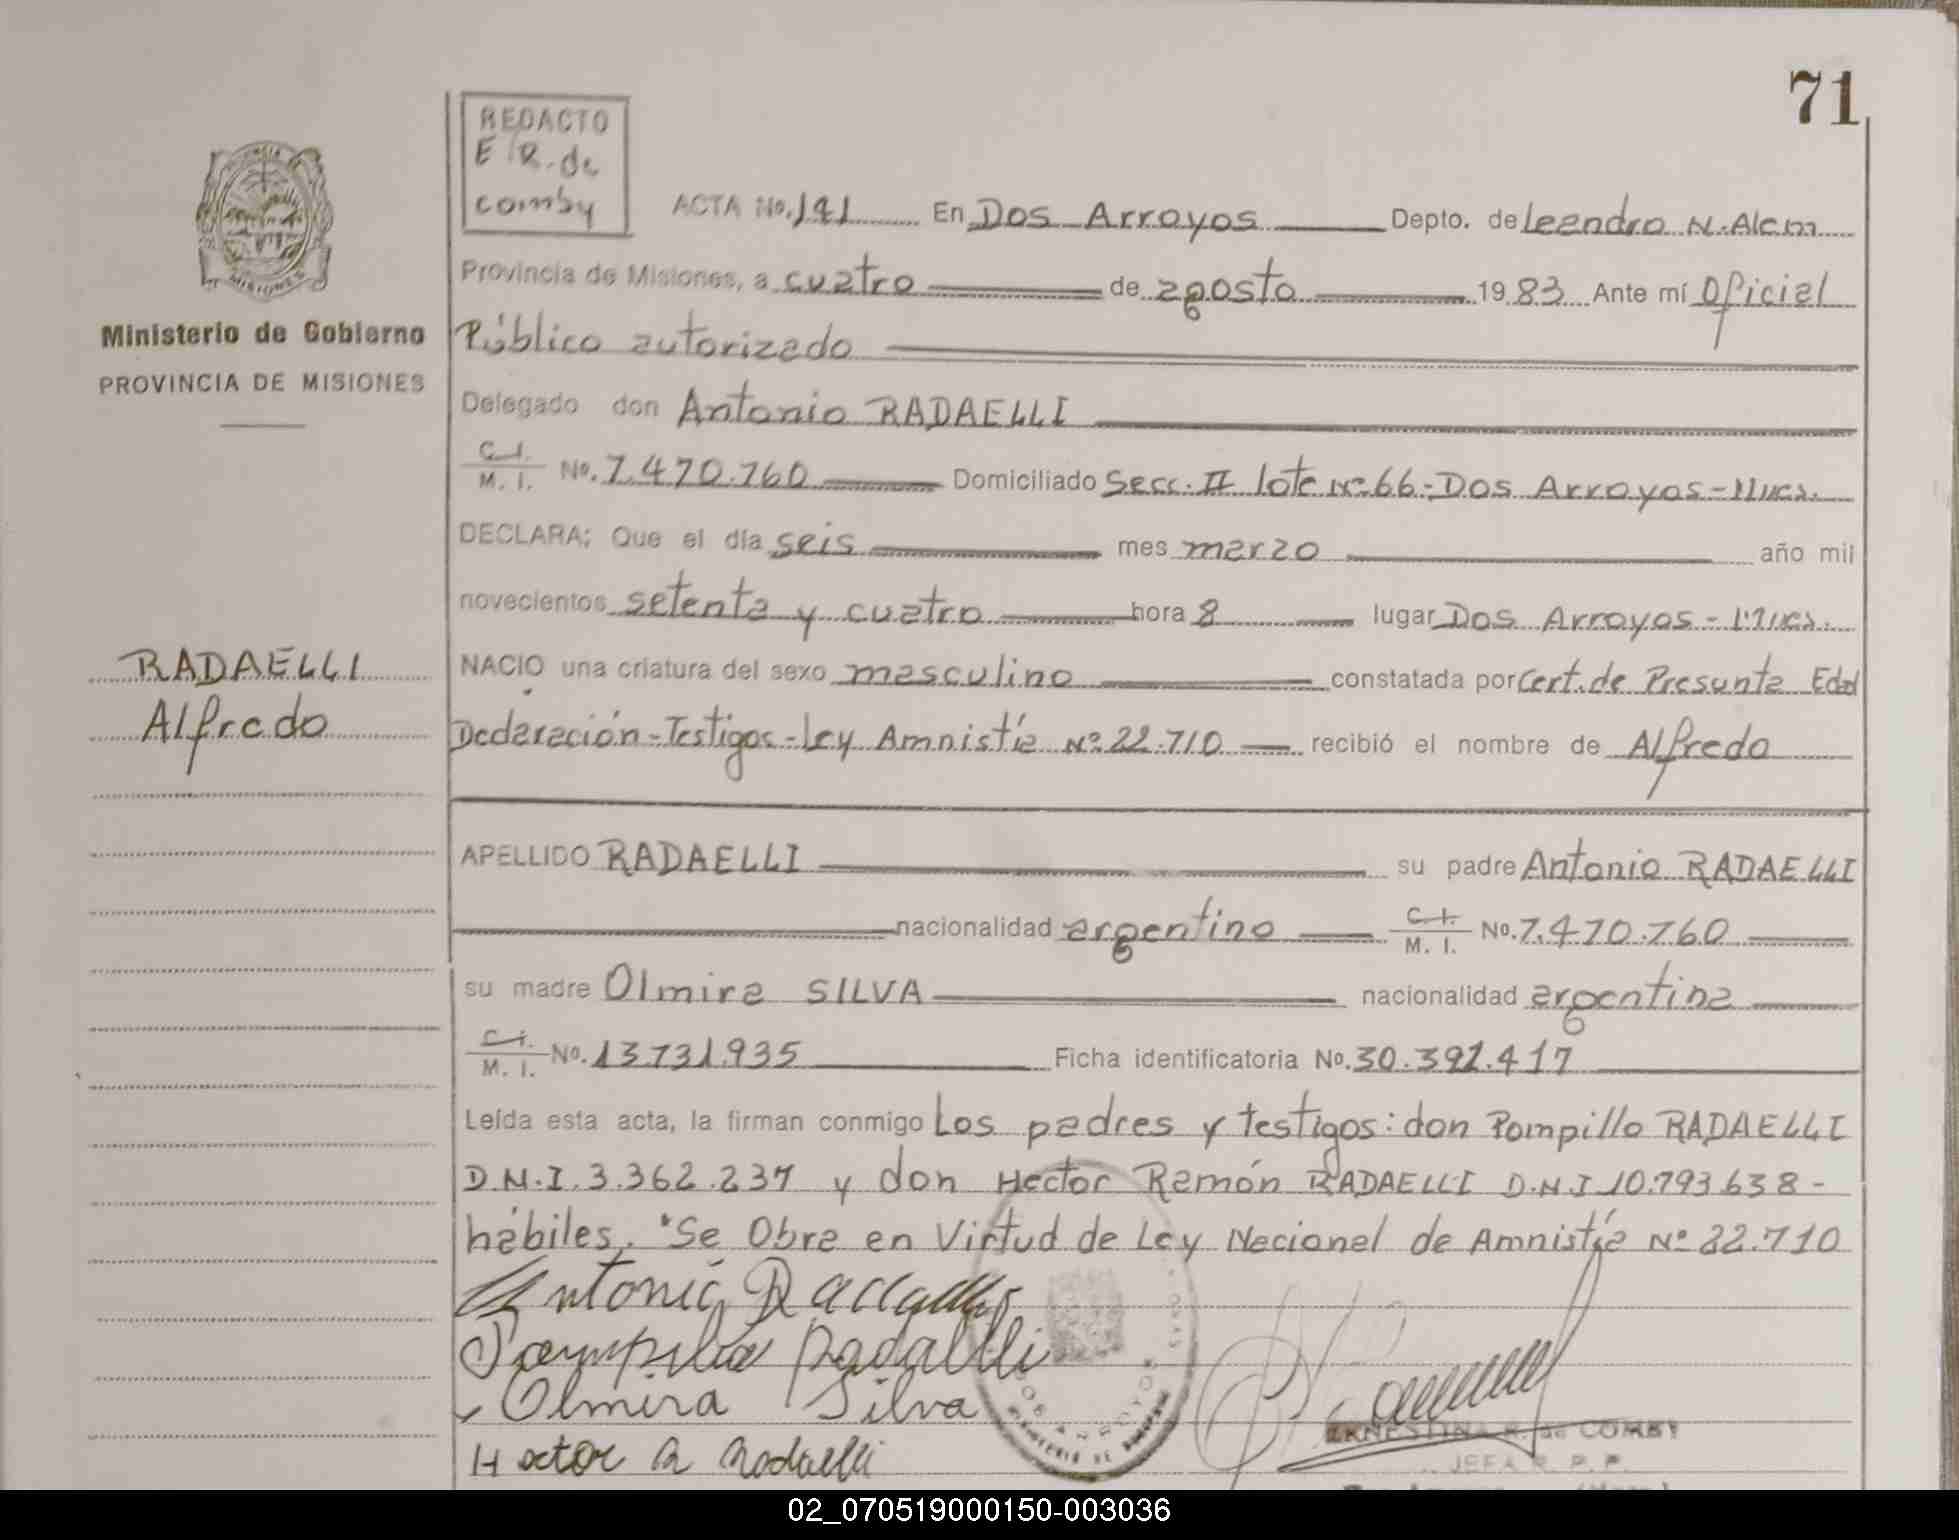 71
REDACTO
E R. de
comby
ACTA No. 141 En Dos Arroyos Depto. de Leandro N. Alem
Provincia de Misiones, a cuatro de agosto 1983 Ante mí Oficial
Público autorizado
Ministerio de Gobierno
PROVINCIA DE MISIONES
Delegado don Antonio RADAELLI
C.I.
M. I. No. 7.470.760 Domiciliado Secc. II lote Nº 66-Dos Arroyos-Mnes.
DECLARA; Que el día seis mes marzo año mil
novecientos setenta y cuatro hora 8 lugar Dos Arroyos - Mnes.
RADAELLI
Alfredo
NACIO una criatura del sexo masculino constatada por Cert. de Presunta Edad
Declaración-Testigos-Ley Amnistía Nº 22.710 recibió el nombre de Alfredo
APELLIDO RADAELLI su padre Antonio RADAELLI
nacionalidad argentino C.I. M. I. No. 7.470.760
su madre Olmira SILVA nacionalidad argentina
C.I.
M. I. No. 13.731.935 Ficha identificatoria No. 30.391.417
Leída esta acta, la firman conmigo Los padres y testigos: don Pompillo RADAELLI
D.N.I. 3.362.237 y don Hector Ramón RADAELLI D.N.I 10.793.638-
hábiles. "Se Obra en Virtud de Ley Nacional de Amnistía Nº 22.710
Antonio Radaelli
Pompilio Radaelli
Olmira Silva
Hector R Radaelli
ERNESTINA R. de COMBY
JEFA R. P. P.
02_070519000150-003036